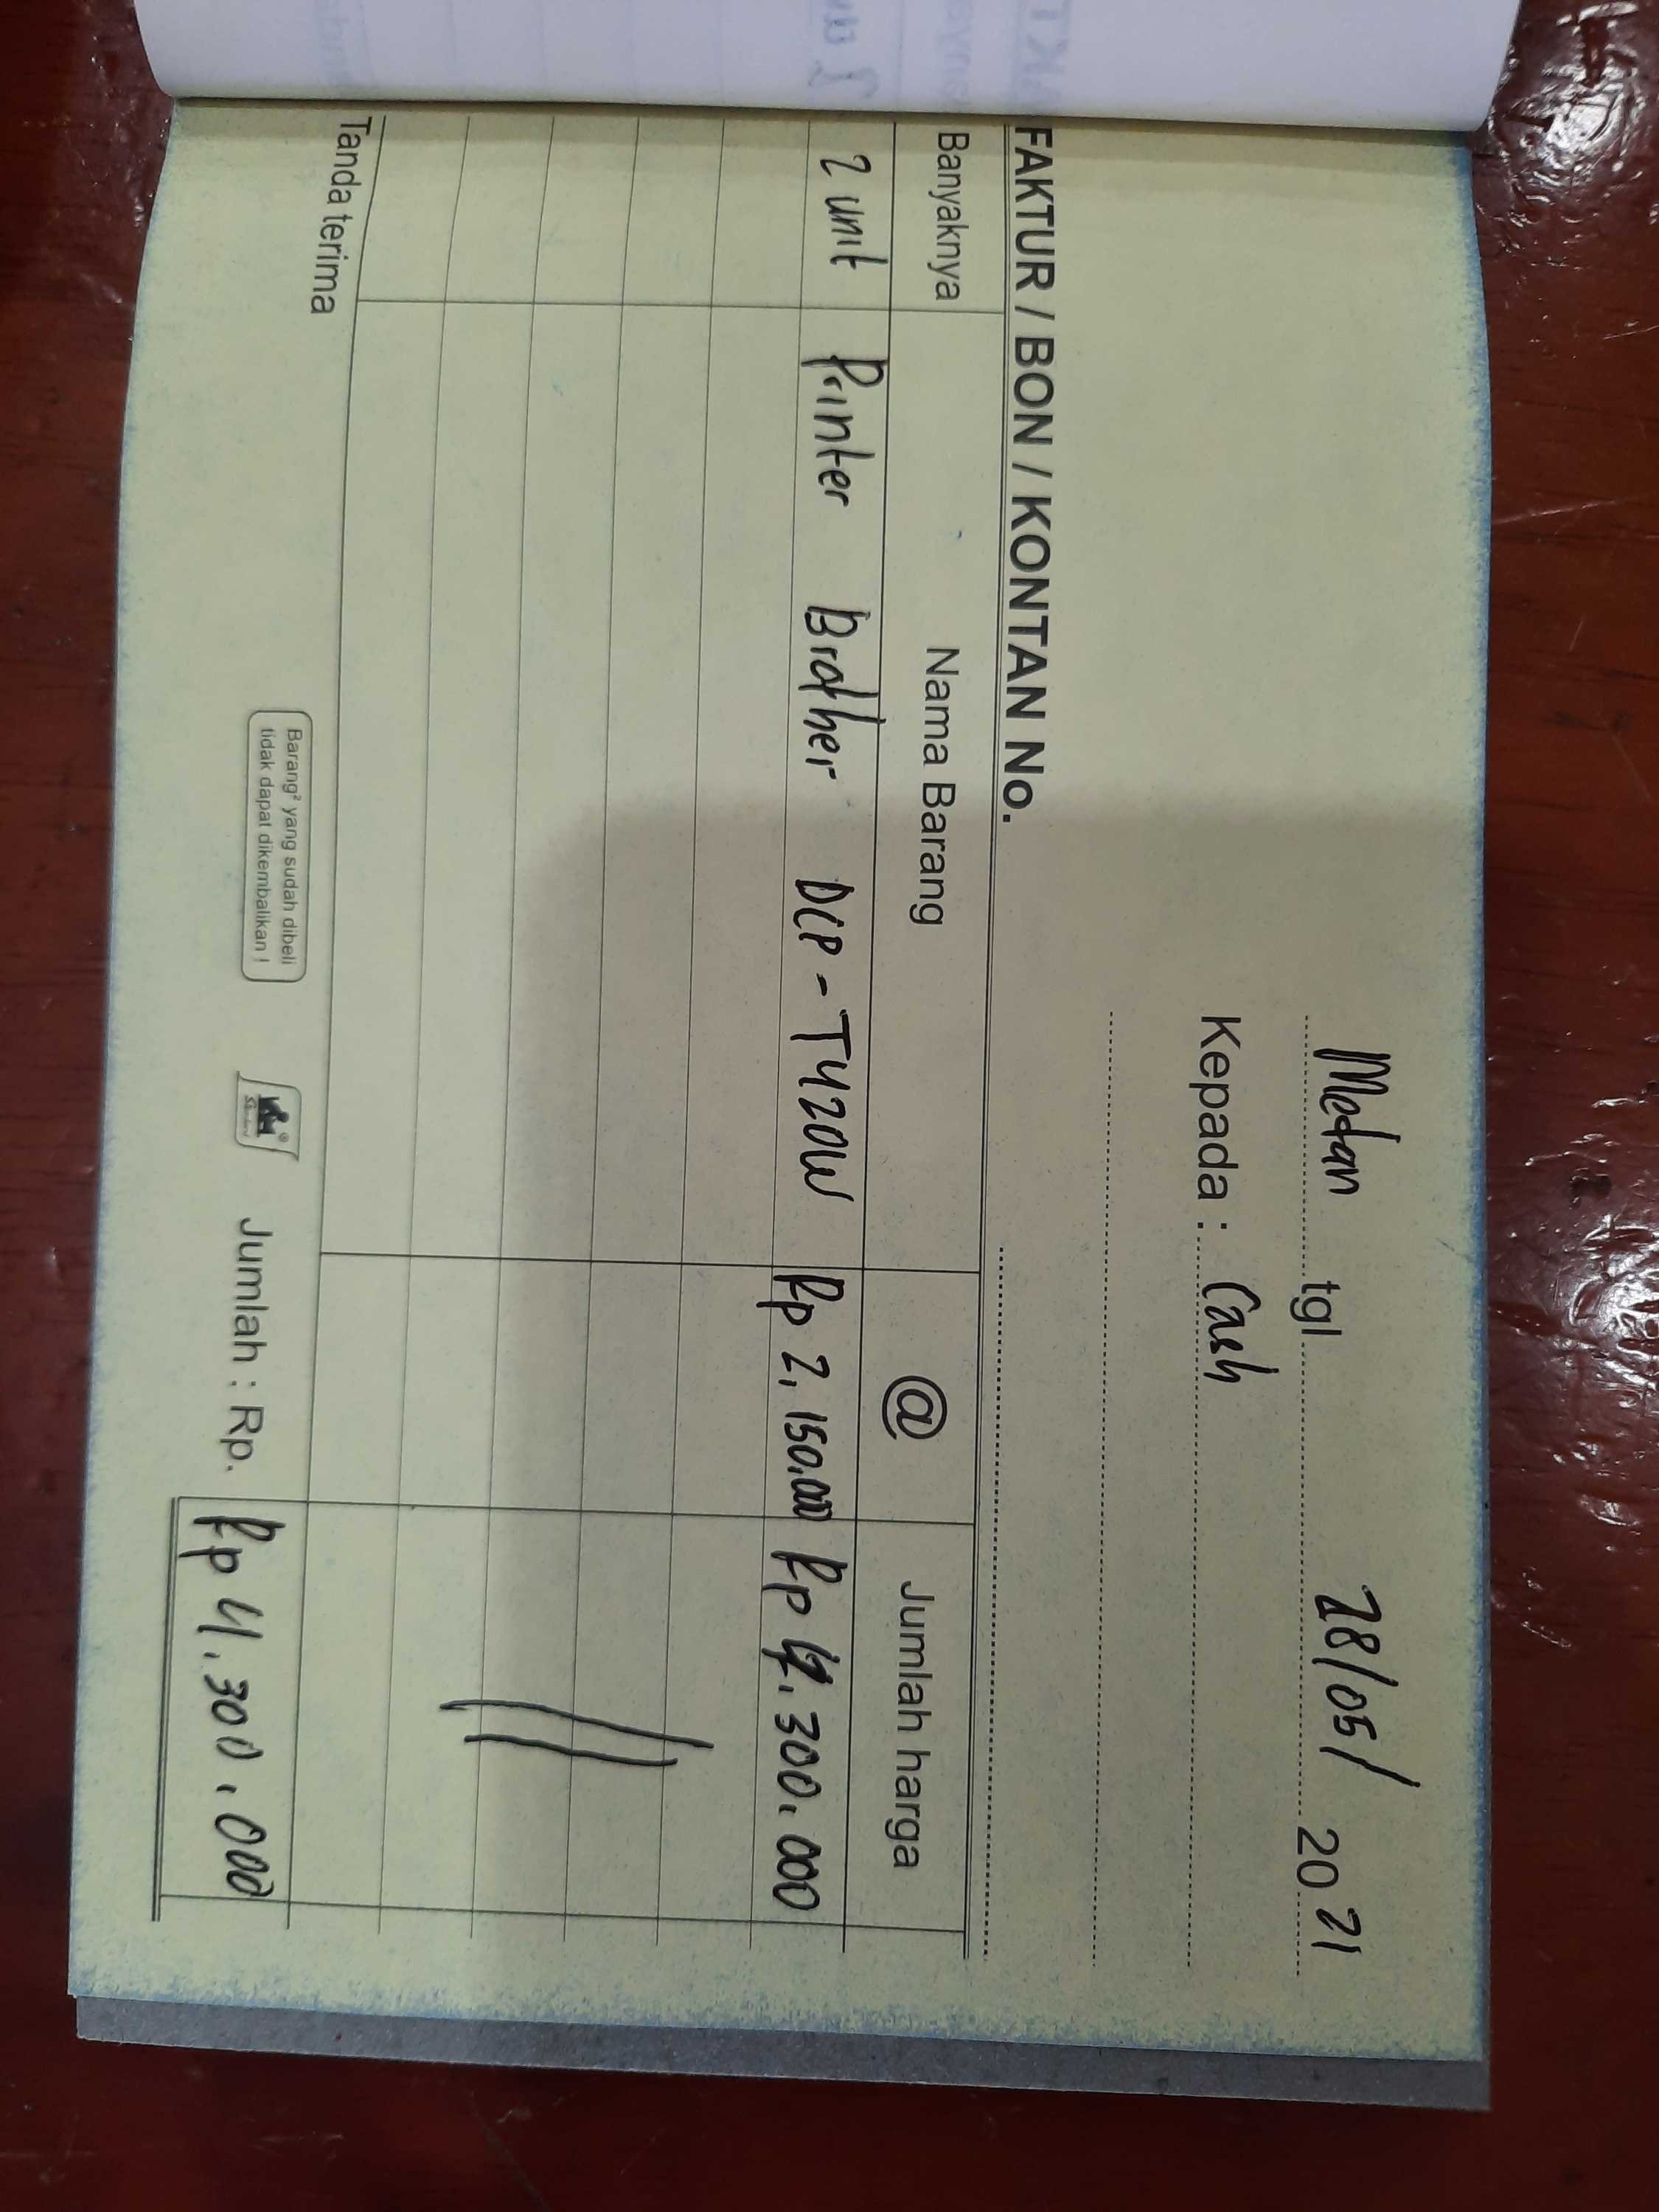 Medan tgl 28/05/ 2021
Kepada : Cash
FAKTUR / BON / KONTAN No.
Banyaknya Nama Barang @ Jumlah harga
2 unit Printer Brother DCP-T420W Rp 2.150.000 Rp 4.300.000
Tanda terima
Barang² yang sudah dibeli
tidak dapat dikembalikan !
Jumlah : Rp. Rp 4.300.000